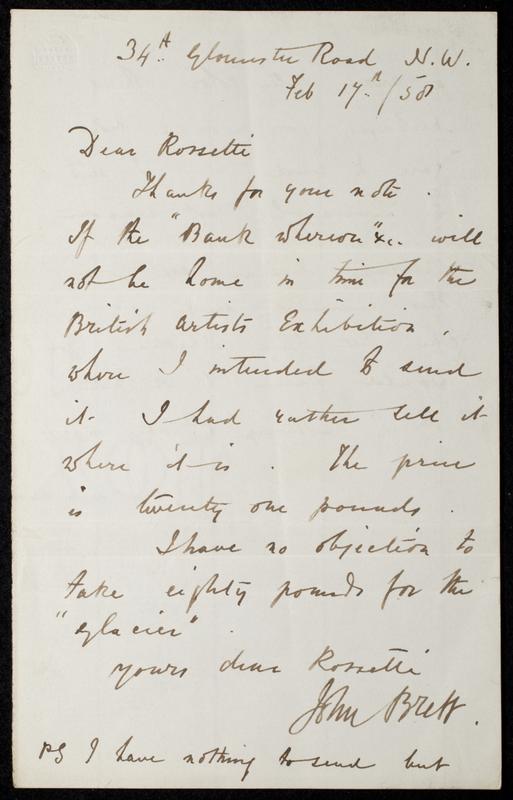 34A. Gloucester Road N.W.
Feb 17th/58
Dear Rossetti
Thanks for your note.
If the "Bank whereon" &c. will
not be home in time for the
British Artists Exhibition,
where I intended to send
it I had rather sell it
where it is. The price
is twenty one pounds.
I have no objection to
take eighty pounds for the
"Glacier".
Yours dear Rossetti
John Brett.
PS I have nothing to send but